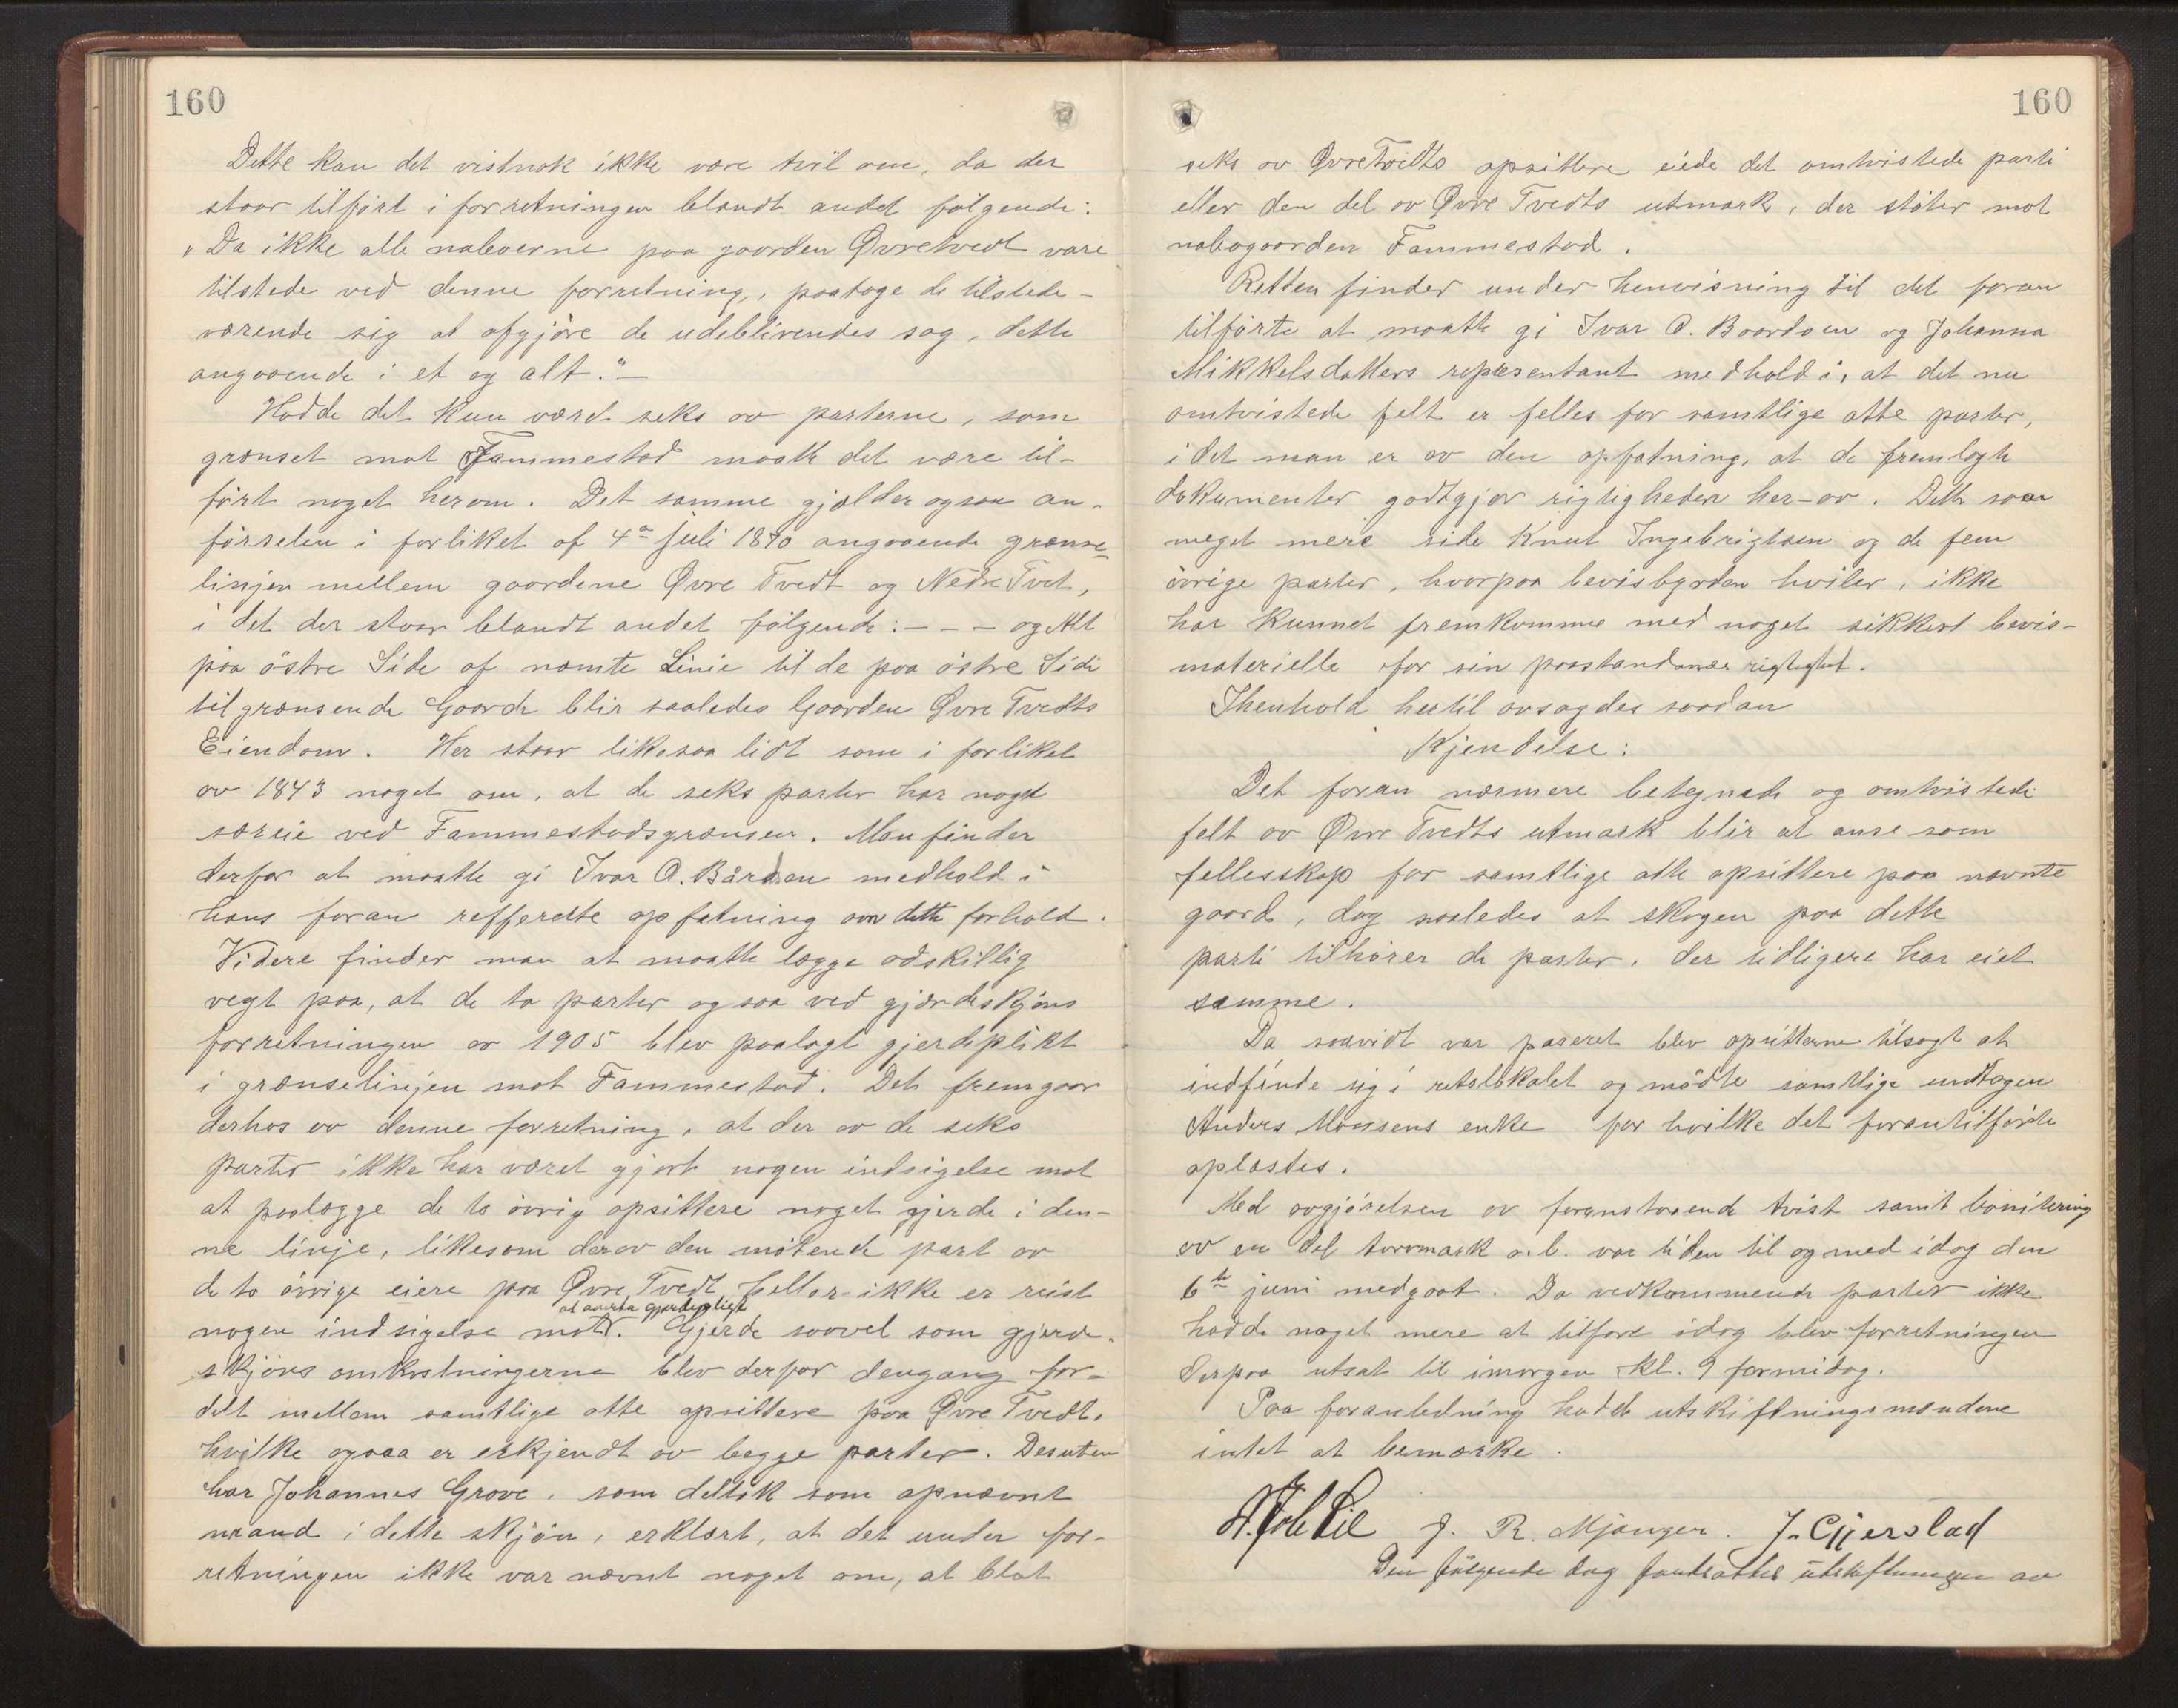 160
Dette kan det vistnok ikke være tvil om, da der
staar tilført i forretningen blandt andet følgende:
„Da ikke alle naboerne paa gaarden Øvretvedt vare
tilstede ved denne forretning, paatoge de tilstede-
værende sig at afgjøre de udeblivendes sag, dette
angaaende i et og alt."—
Hadde det kun været seks av parterne, som
grænset mot Fammestad maatte det være til-
ført noget herom. Det samme gjælder ogsaa an-
førselen i forliket af 4de juli 1870 angaaende grænse-
linjen mellem gaardene Øvre Tvedt og Nedre Tvet,
i det der staar blandt andet følgende: - - - og Alt
paa østre Side af nævnte Linie til de paa østre Side
tilgrænsende Gaarde blir saaledes Gaarden Øvre Tvedts
Eiendom. Her staar likesaa lidt som i forliket
av 1843 noget om, at de seks parter har noget
særeie ved Fammestadsgrænsen. Man finder
derfor at maatte gi Ivar O. Bårdsen medhold i
hans foran refferedte opfatning om dette forhold.
Videre finder man at maatte lægge adskillig
vegt paa, at de to parter ogsaa ved gjærdeskjøns
forretningen av 1905 blev paalagt gjerdeplikt
i grænselinjen mot Fammestad. Det fremgaar
derhos av denne forretning, at der av de seks
parter ikke har været gjort nogen indsigelse mot
at paalægge de to øvrig opsittere noget gjerde i den-
ne linje, likesom derav den møtende part av
de to øvrige eiere paa Øvre Tvedt heller ikke er reist
nogen indsigelse mot at overta gjerdepligt. Gjerde saavel som gjerde-
skjøns omkostningerne blev derfor dengang for-
delt mellem samtlige otte opsittere paa Øvre Tvedt,
hvilke ogsaa er erkjendt av begge parter. Desuten
har Johannes Grove, som deltok som opnævnt
mand i dette skjøn, erklært, at det under for-
retningen ikke var nævnt noget om, at blot
160
seks av Øvre Tvedts opsittere eiede det omtvistede parti
eller den del av Øvre Tvedts utmark, der støter mot
nabogaarden Fammestad.
Retten finder under henvisning til det foran
tilførte at maatte gi Ivar O. Baardsen og Johanna
Mikkelsdatters repræsentant medhold i, at det nu
omtvistede felt er felles for samtlige otte parter,
i det man er av den opfatning, at de fremlagte
dokumenter godtgjør rigtigheden her-av. Dette saa
meget mere side Knut Ingebrigtsen og de fem
øvrige parter, hvorpaa bevisbyrden hviler, ikke
har kunnet fremkomme med noget sikkert bevis-
materielle for sin paastandsnær rigtighet.
I henhold hertil avsagdes saadan
Kjendelse:
Det foran nærmere betegnede og omtvistede
felt av Øvre Tvedts utmark blir at anse som
fellesskap for samtlige otte opsittere paa nævnte
gaard, dog saaledes at skogen paa dette
parti tilhører de parter, der tidligere har eiet
samme.
Da saavidt var passeret blev opsitterne tilsagt at
indfinde sig i retslokalet og mødte samtlige undtagen
Anders Monsens enke for hvilke det forantilførte
oplæstes.
Med avgjørelsen av foranstaaende tvist samt bonitering
av en del torvmark o.l. var tiden til og med idag den
6te juni medgaat. Da vedkommende parter ikke
hadde noget mere at tilføre idag blev forretningen
derpaa utsat til imorgen kl. 9 formidag.
Paa foranledning hadde utskiftningsmændene
intet at bemærke.
J. R. Mjanger. J. Gjerstad
Den følgende dag fortsattes utskiftningen av